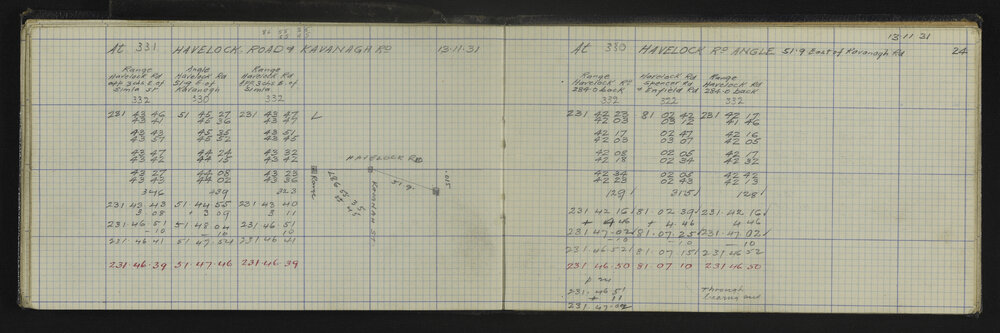 At 331 HAVELOCK ROAD & KAVANAGH RD 13.11.31
Range Angle Range
Havelock Rd Havelock Rd Havelock Rd
opp 3chs E of 51.9 E of opp 3chs E of
Simla St Kavanagh Simla
332 330 332
231 43 46 51 45 27 231 43 47 L
43 41 45 36 43 47
43 43 45 35 43 51
43 57 45 52 43 45
43 47 44 24 43 32
43 42 44 15 43 42
43 27 44 08 43 23
43 43 44 02 43 36
346 439 323
231 43 43 51 44 55 231 43 40
3 08 + 3 09 3 11
231 46 51 51 48 04 231 46 51
-10 -10 -10
231 46 41 51 47 54 231 46 41
231 46 39 51 47 46 231 46 39
HAVELOCK RD
Range
51.9
.015
At 330 HAVELOCK RD ANGLE 51.9 East of Kavanagh Rd
13.11.31
24
Range Havelock Rd Range
Havelock Rd Spencer Rd Havelock Rd
284.0 back & Enfield Rd 284.0 back
332 322 332
231 42 23 81 02 42 231 42 17
42 02 03 12 41 46
42 17 02 47 42 16
42 02 03 07 42 05
42 08 02 05 42 17
42 18 02 34 42 32
42 34 02 06 42 23
42 23 02 43 42 13
129 315 128
231 42 16 81 02 39 231 42 16
+ 4 46 + 4 46 4 46
231 47 02 81 07 25 231 47 02
-10 -10 -10
231 46 52 81 07 15 231 46 52
231 46 50 81 07 10 231 46 50
p m
231 46 51 Through
+ 11 bearing out
231 47 02